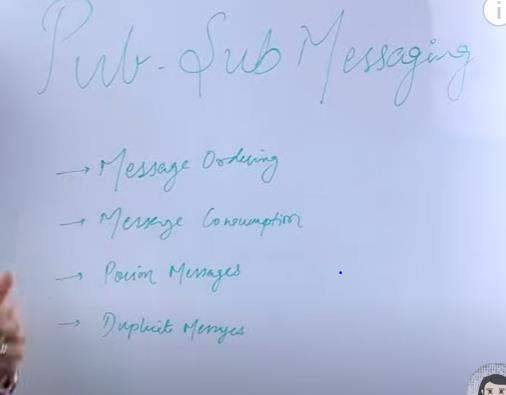 Pub-Sub Messaging
→ Message Ordering
→ Message Consumption
→ Poison Messages
→ Duplicate Messages